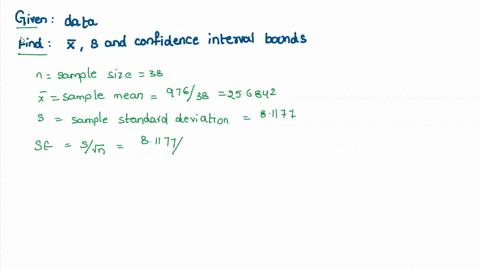 Given: data
Find: x̄, s and confidence interval bounds
n = sample size = 38
x̄ = sample mean = 976/38 = 25.6842
s = sample standard deviation = 8.1177
SE = s/√n = 8.1177/